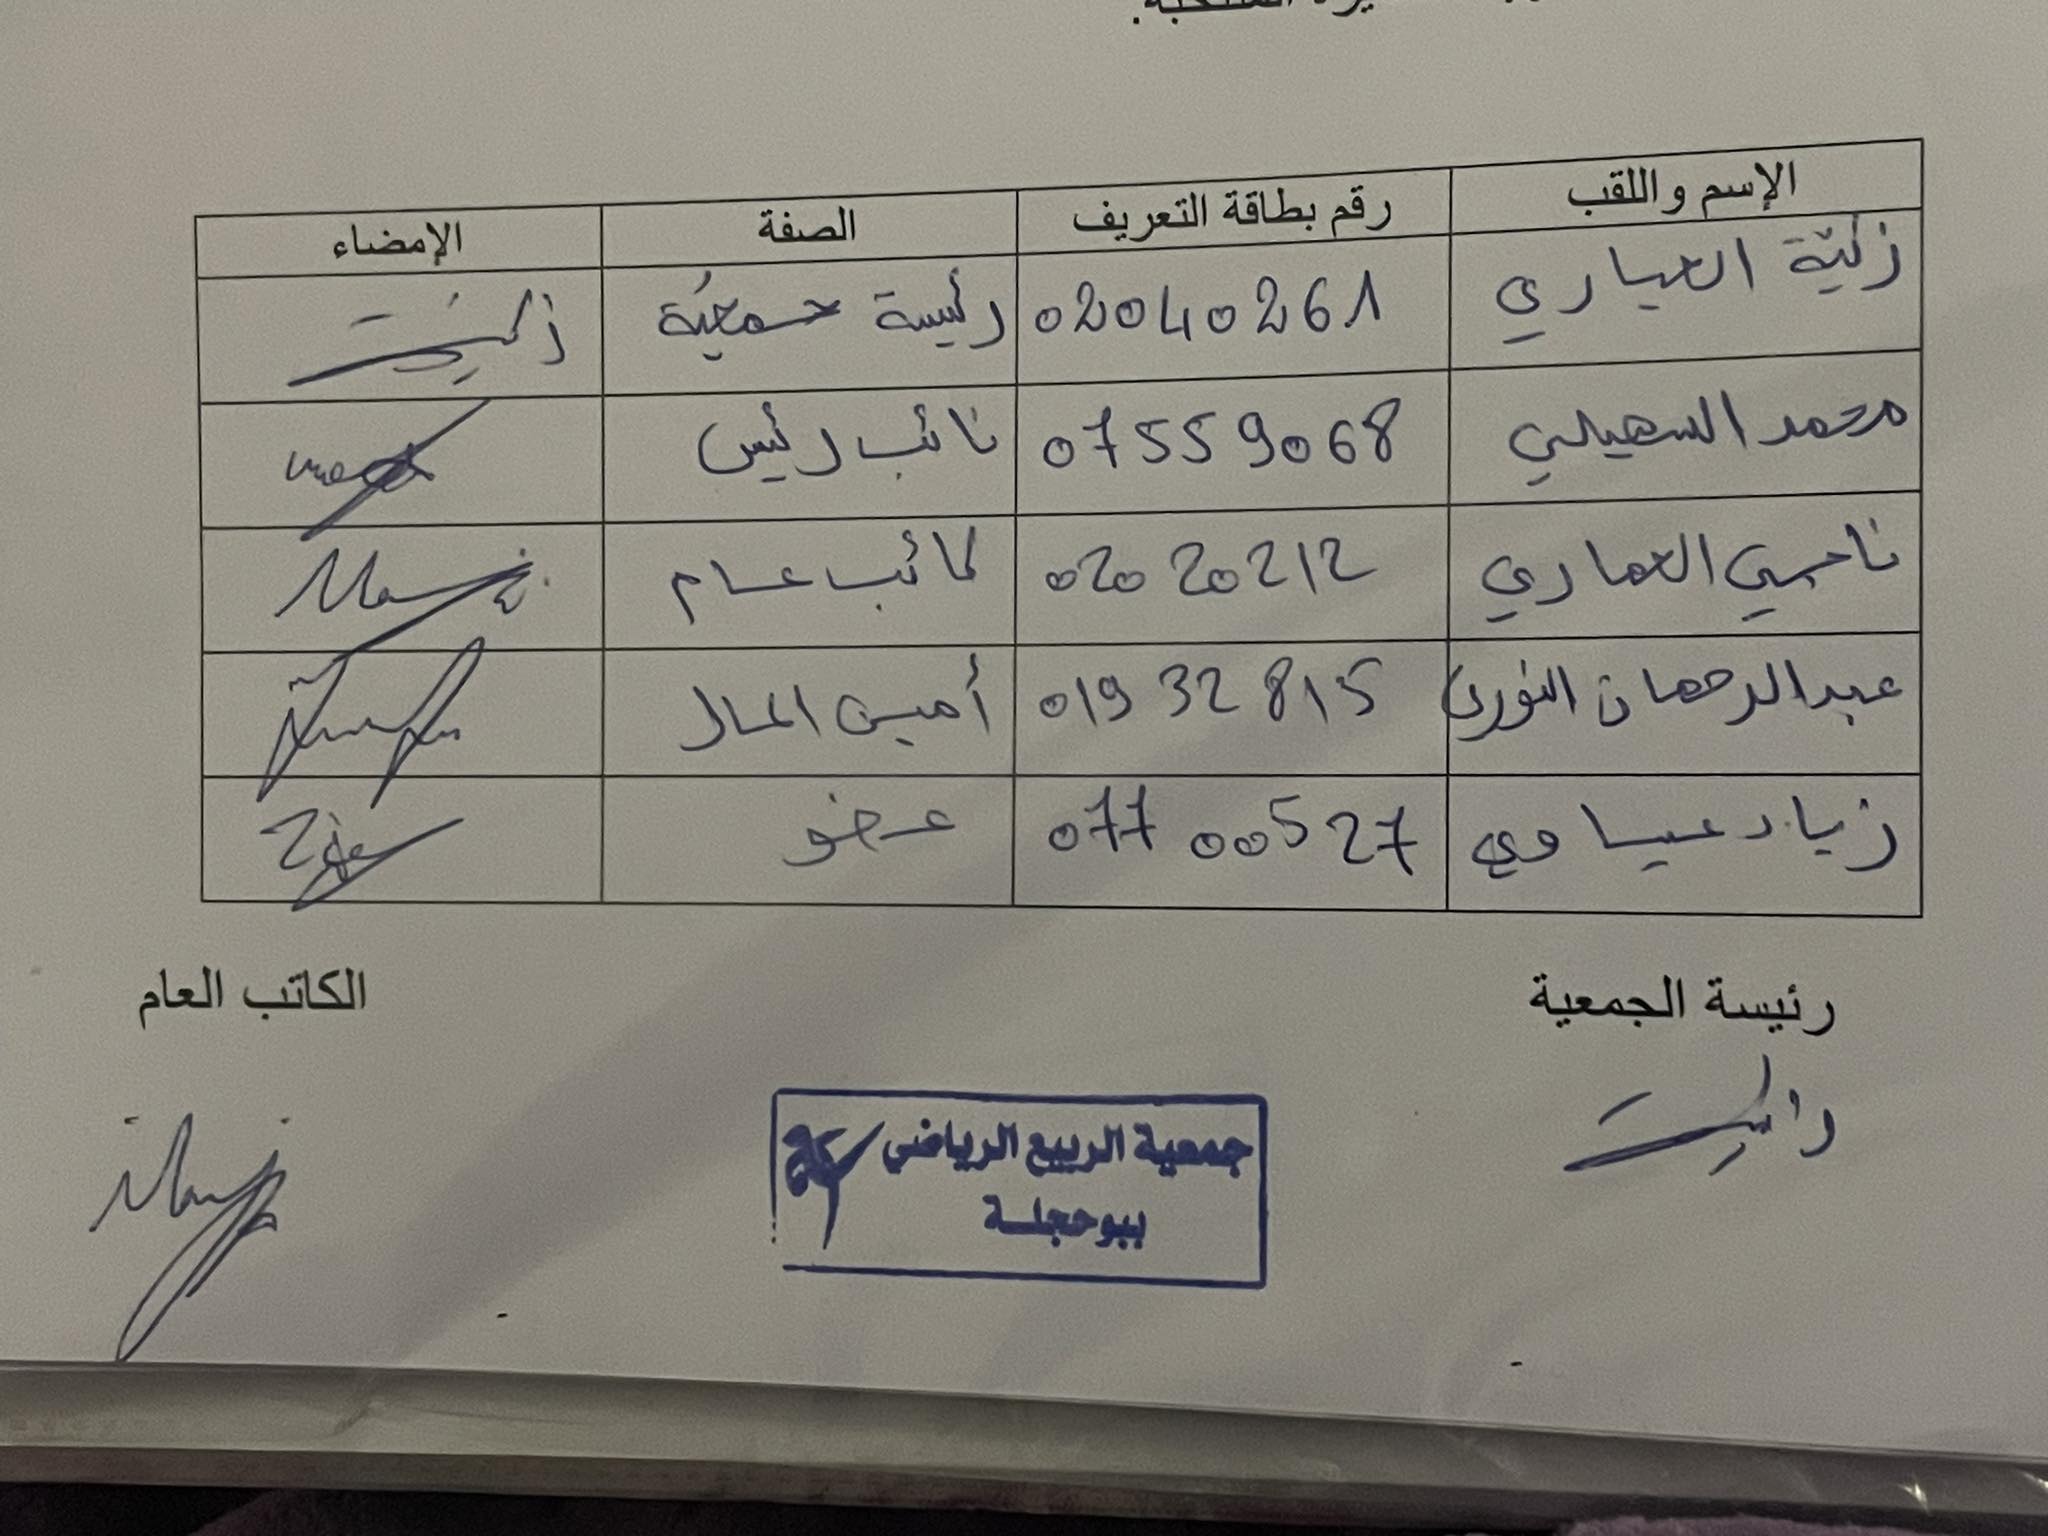 الإسم واللقب رقم بطاقة التعريف الصفة الإمضاء
زكيّة العياري 02040261 رئيسة جمعيّة زكية
محمد السهيلي 07559068 نائب رئيس
ناجي العماري 02020212 كاتب عام
عبد الرحمان النوري 01932815 أمين المال
زياد عيساوي 07700527 عضو
رئيسة الجمعية الكاتب العام
جمعية الربيع الرياضي
ببوحجلة